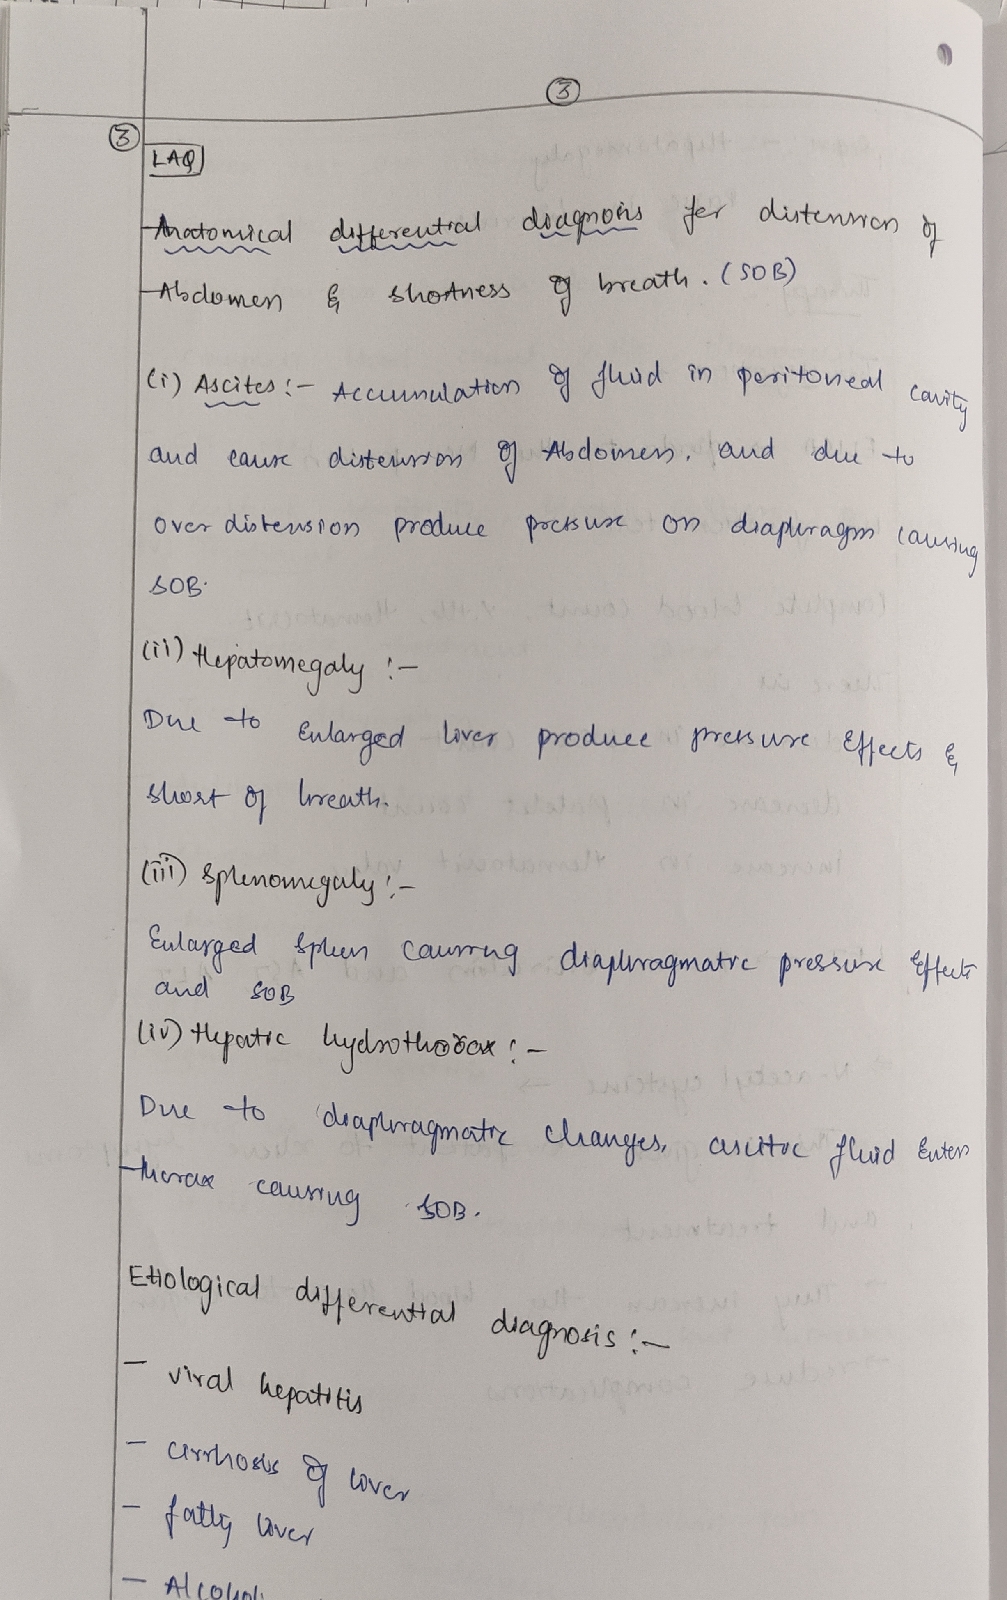 3
3
LAQ
Anatomical differential diagnosis for distension of
Abdomen & shortness of breath. (SOB)
(i) Ascites :- Accumulation of fluid in peritoneal cavity
and cause distension of Abdomen, and due to
over distension produce pressure on diaphragm causing
SOB.
(ii) Hepatomegaly :-
Due to Enlarged liver produce pressure Effects &
short of breath.
(iii) Splenomegaly :-
Enlarged spleen causing diaphragmatic pressure Effects
and SOB
(iv) Hepatic hydrothorax :-
Due to diaphragmatic changes, ascitic fluid Enters
thorax causing SOB.
Etiological differential diagnosis :-
- viral hepatitis
- cirrhosis of liver
- fatty liver